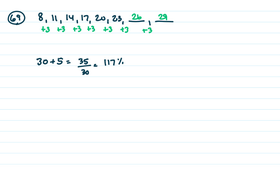 69 8, 11, 14, 17, 20, 23, 26, 29
+3 +3 +3 +3 +3 +3 +3
30 + 5 = 35/30 = 117%